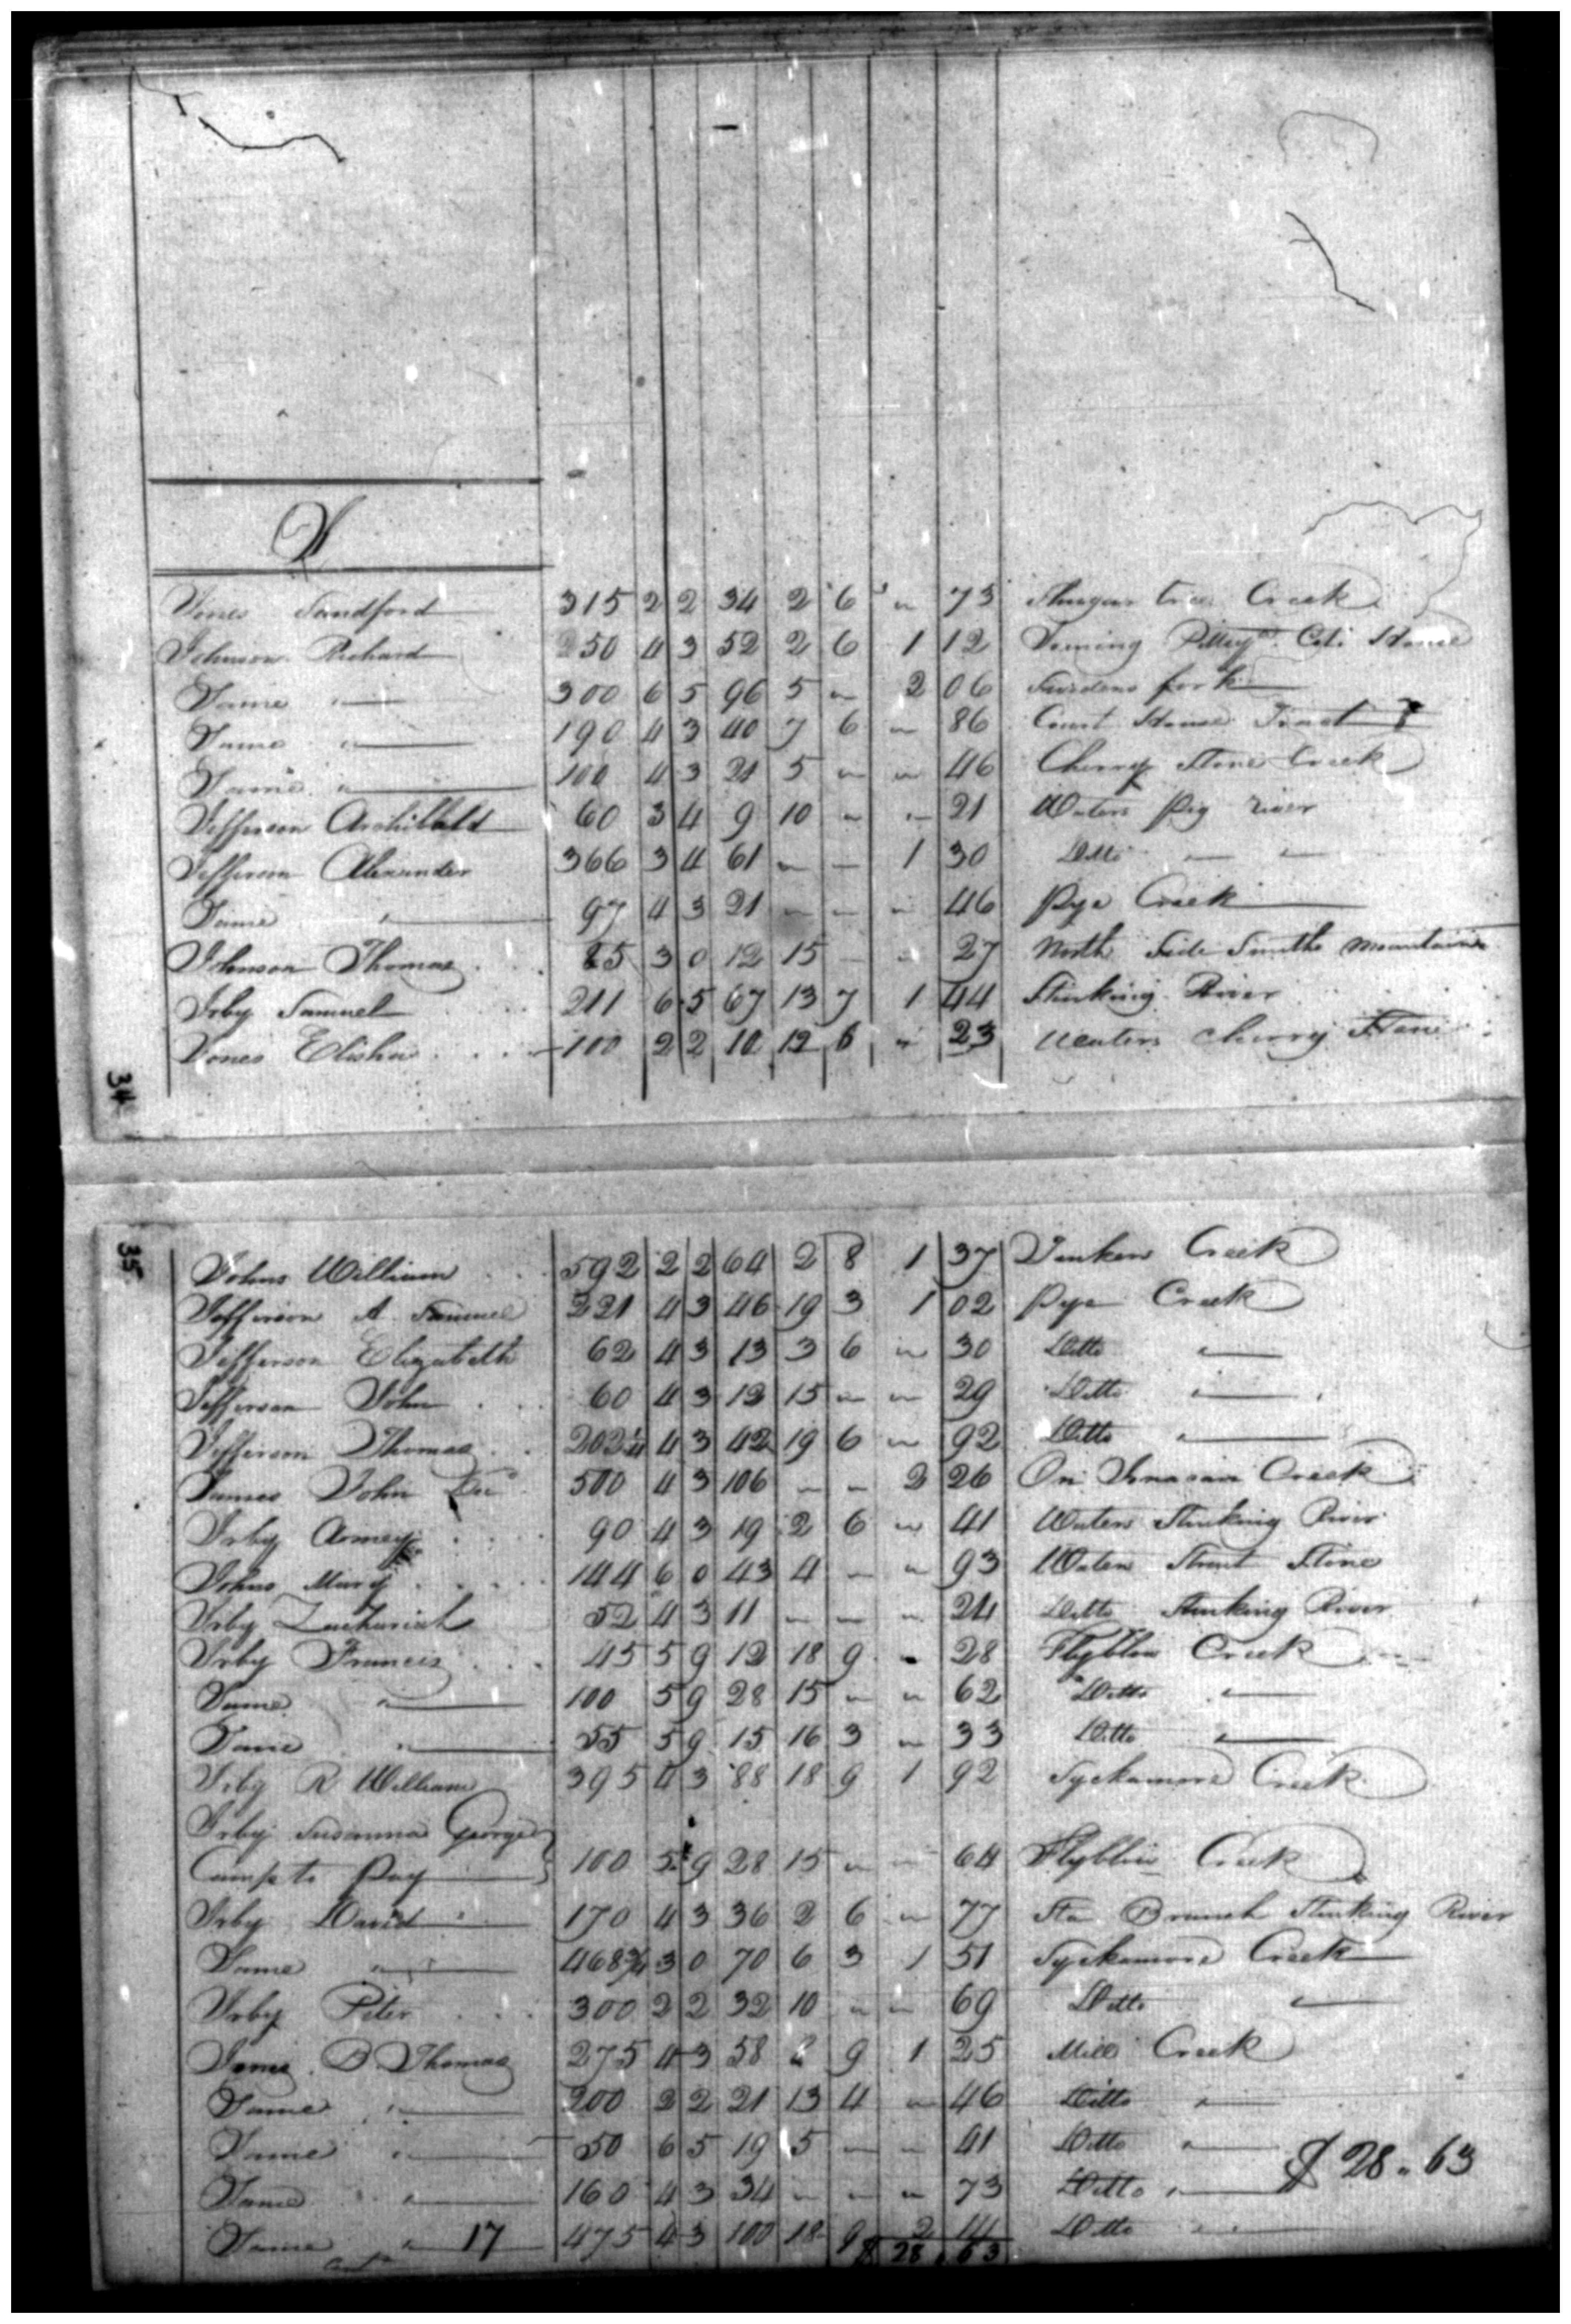 Jones Sandford 315 2 2 34 2 6 " 73 Shugar tree Creek
Johnson Richard 250 4 3 52 2 6 1 12 Joining Ct House
Same " 300 6 5 96 5 " 2 06 fork
Same " 190 4 3 40 7 6 " 86 Court House Tract
Same " 100 4 3 21 5 " " 46 Cherry Stone Creek
Jefferson Archibald 60 3 4 9 10 " " 21 Waters Pig river
Jefferson Alexander 366 3 4 61 " — 1 30 Ditto — "
Same " 97 4 3 21 — — " 46 Pye Creek
Johnson Thomas 85 3 0 12 15 — " 27 North Side Smiths Mountain
Irby Samuel 211 6 5 67 13 7 1 44 Stinking River
Jones Elisha 100 2 2 10 12 6 " 23 Waters Cherry Stone
34
35
Johns William 592 2 2 64 2 8 1 37 Creek
Jefferson A Samuel 221 4 3 46 19 3 1 02 Pye Creek
Jefferson Elizabeth 62 4 3 13 3 6 " 30 Ditto "
Jefferson John 60 4 3 12 15 " " 29 Ditto "
Jefferson Thomas 202 1/4 4 3 42 19 6 " 92 Ditto "
James John 500 4 3 106 — — 2 26 On Creek
Irby 90 4 3 19 2 6 " 41 Waters Stinking River
Johns Mary 144 6 0 43 4 — " 93 Waters Stone
Irby Zachariah 52 4 3 11 — — " 24 Ditto Stinking River
Irby Francis 45 5 9 12 18 9 " 28 Flyblow Creek
Same " 100 5 9 28 15 " " 62 Ditto "
Same " 55 5 9 15 16 3 " 33 Ditto "
Irby R William 395 4 3 88 18 9 1 92 Syckamore Creek
Irby Susanna George
Camp to Pay 100 5 9 28 15 " " 64 Flyblow Creek
Irby David " 170 4 3 36 2 6 " 77 Branch Stinking River
Same " 468 3/4 3 0 70 6 3 1 51 Syckamore Creek
Irby Peter 300 2 2 32 10 " " 69 Ditto "
B Thomas 275 4 3 58 8 9 1 25 Mill Creek
Same " 200 2 2 21 13 4 " 46 Ditto "
Same " 50 6 5 19 5 — " 41 Ditto "
Same " 160 4 3 34 " " " 73 Ditto " $28.63
Same " 17 475 4 3 100 18 9 2 14 Ditto "
$ 28.63